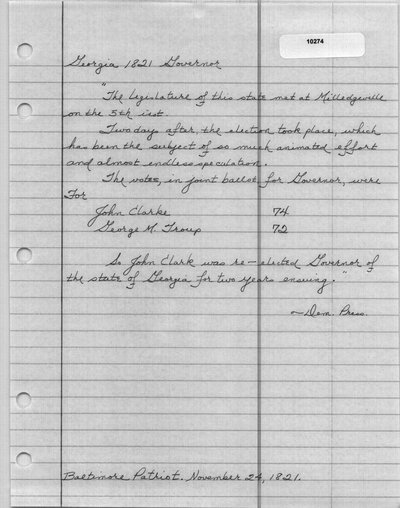 10274
Georgia 1821 Governor
"The legislature of this state met at Milledgeville
on the 5th inst.
Two days after, the election took place, which
has been the subject of so much animated effort
and almost endless speculation.
The votes, in joint ballot for Governor, were
For
John Clarke 74
George M. Troup 72
So John Clark was re-elected Governor of
the state of Georgia for two years ensuing."
~Dem. Press.
Baltimore Patriot. November 24, 1821.